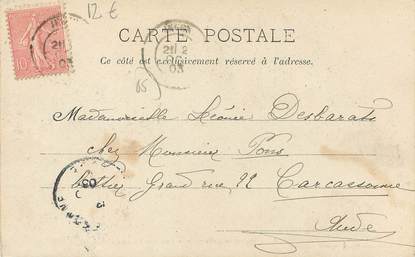 12 €
10
21
03
21 2
03
CARTE POSTALE
Ce côté est exclusivement réservé à l'adresse.
65
Mademoiselle Léonie Desbarats
chez Monsieur Pons
Grand rue 22 Carcassonne
Aude
03